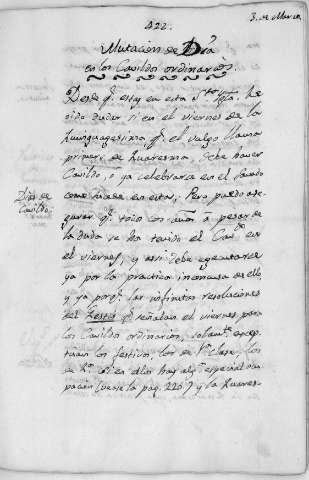 422.
3. de Marzo
Mutacion de Dia
en los Cavildos ordinarios
Desde q.e estoy en esta S.ta Igl.a he
oido dudar si en el viernes de la
Quinquagesima q.e el vulgo llama
primero de Quaresma, debe haver
Cavildo, o ya celebrarse en el Savado
como se usa en estas; Pero puedo ase-
gurar q.e todo con a pesar de
la duda se ha tenido el Cav.do en
el viernes, y assi debe egecutarse
ya por la practica inconcusa de ello
y ya porq.e las infinitas resoluciones
del q.e señalan el viernes para
los Cavildos ordinarios, solam.te excep-
tuan los festivos, los de 1.a clase, y los
de 2.a si en ellos hay alg.a especial ocu-
pacion (vease la pag. 220) y la Quares-
Dias de
Cavildo.